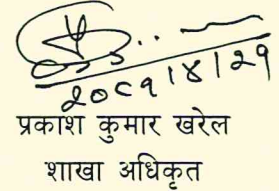 २०८१।४।२१
प्रकाश कुमार खरेल
शाखा अधिकृत